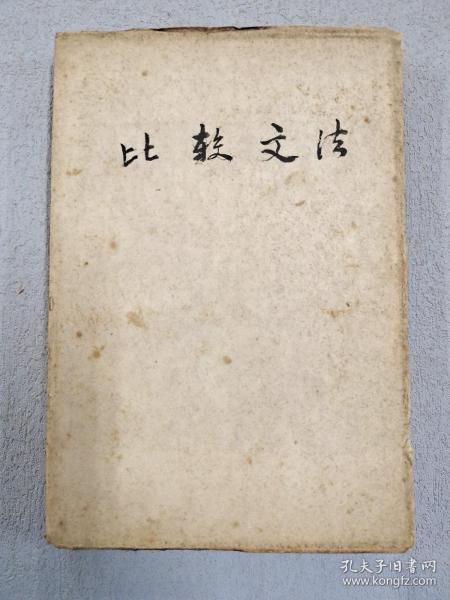 比较文法
孔夫子旧书网
www.kongfz.com